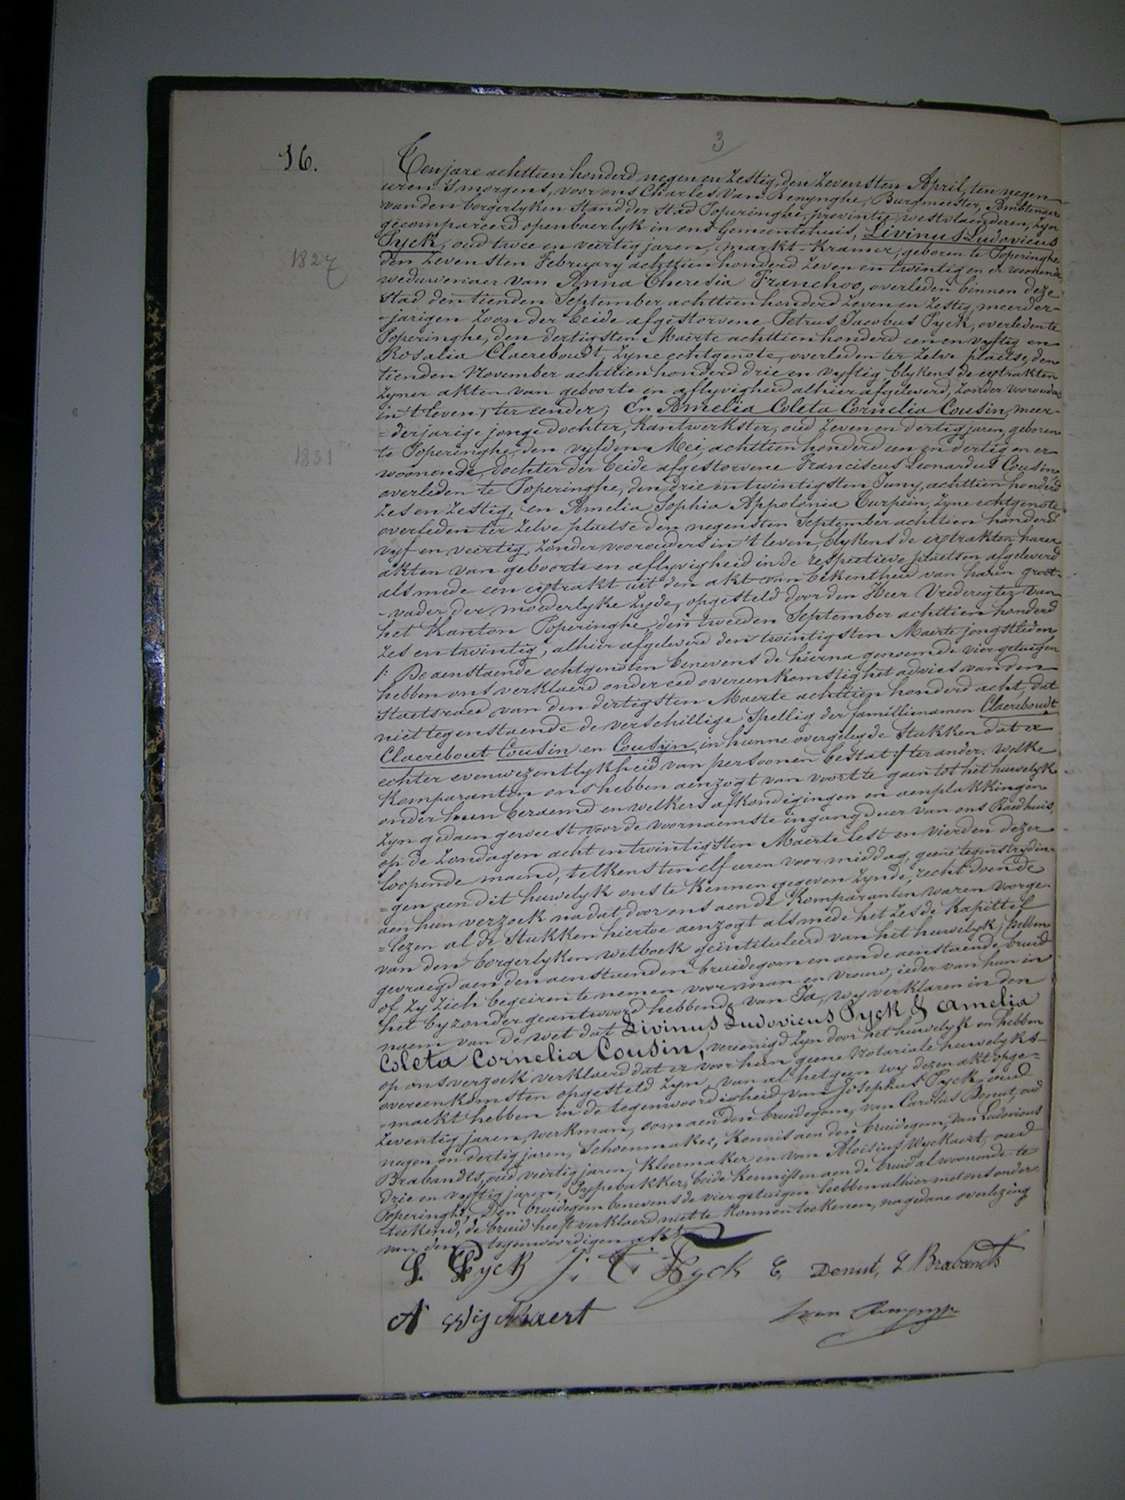 3
16.
Ten jare achttien honderd negen en Zestig, den Zevensten April, ten negen
uren 's morgens, voor ons Charles Van Renynghe, Burgmeester, Ambtenaer
van den borgerlyken Stand der Stad Poperinghe, provintie westvlaenderen, Zyn
gecompareerd openbaerlyk in ons Gemeentehuis, Livinus Ludovicus
Pyck, oud twee en veertig jaren, markt-Kramer, geboren te Poperinghe
1827
den Zevensten February achttien honderd Zeven en twintig en er woonende
weduwenaer van Anna Theresia Franchoo, overleden binnen deze
Stad den tienden September achttien honderd Zeven en Zestig, meerder-
-jarigen Zoon der beide afgestorvene Petrus Jacobus Pyck, overleden te
Poperinghe, den dertigsten Maerte achttien honderd een en vyftig en
Rosalia Claereboudt, Zyne echtgenote, overleden ter Zelve plaetse, den
tienden November achttien honderd drie en vyftig blykens de extrakten
Zyner akten van geboorte en aflyvigheid alhier afgeleverd, Zonder voorouders
in 't leven, ter eender; En Amelia Coleta Cornelia Cousin, meer-
-derjarige jonge dochter, Kantwerkster, oud Zeven en dertig jaren, geboren
te Poperinghe, den vyfden Mei, achttien honderd een en dertig en er
1831
woonende, dochter der beide afgestorvene Franciscus Leonardus Cousin
overleden te Poperinghe, den drie en twintigsten Juny, achttien honderd
Zes en Zestig, en Amelia Sophia Appolonia Turpein, Zyne echtgenote
overleden ter Zelve plaetse den negensten September achttien honderd
vyf en veertig, Zonder voorouders in 't leven, blykens de extrakten harer
akten van geboorte en aflyvigheid in de respectieve plaetsen afgeleverd
als mede een extrakt uit den akt van bekentheid van haren groot-
-vader, der moederlyke Zyde, opgesteld door den Heer Vrederegter van
het Kanton Poperinghe, den tweeden September achttien honderd
Zes en twintig, alhier afgeleverd den twintigsten Maerte jongstleden
/: De aenstaende echtgenoten benevens de hierna genoemde vier getuigen
hebben ons verklaerd onder eed overeenkomstig het advies van den
Staetsraed van den dertigsten Maerte achttien honderd acht, dat
niet tegenstaende de verschillige Spellig der famillienamen Claereboudt
Claerebout Cousin en Cousyn, in hunne overgelegde Stukken dat er
echter evenwezentlykheid van persoonen bestat :/ ter ander. welke
Komparanten ons hebben aenzogt van voort te gaen tot het huwelyk
onder hun beraemd en welkers afkondigingen en aenplakkingen
Zyn gedaen geweest voor de voornaemste ingang deur van ons Raedhuis,
op de Zondagen acht en twintigsten Maerte lest en vierden dezer
loopende maend, telkens ten elf uren voor middag, geene tegenstrydin-
-gen aen dit huwelyk ons te kennen gegeven Zynde, recht doende
aen hun verzoek nadat door ons aen de Komparanten waren voorge-
-lezen al de Stukken hiertoe aenzogt als mede het Zesde Kapittel
van den borgerlyken wetboek geintituleerd van het huwelyk, hebben
gevraegd aen den aenstaenden bruidegom en aen de aenstaende bruid
of zy zich begeiren te nemen voor man en vrouw, ieder van hun in
het byzonder geantwoord hebbende van Ja, wy verklaren in den
naem van de wet dat Livinus Ludovicus Pyck & Amelia
Coleta Cornelia Cousin, vereenigd Zyn door het huwelyk en hebben
op ons verzoek verklaerd dat er voor hun geene Notariale huwelyks-
overeenkomsten opgesteld Zyn, van al hetgeen wy dezen akt opge-
-maekt hebben in de tegenwoordigheid van Josephus Pyck, oud
Zeventig jaren, werkman, oom aen den bruidegom, van Carolus Denut, oud
negen en dertig jaren, Schoenmaker, Kennis aen den bruidegom, van Ludovicus
Brabandts, oud veertig jaren, Kleermaker en van Aloisius Wyckaert, oud
drie en vyftig jaren, Pypebakker, beide Kennissen aen de bruid al woonende te
Poperinghe, Den bruidegom benevens de vier getuigen hebben alhier met ons onder-
teekend, de bruid heeft verklaerd niet te konnen teekenen, na gedane overlezing
van den tegenwoordigen akt.
L. Pyck J. C. Pyck C, Denut, L Brabandts
A Wyckaert van Renynghe